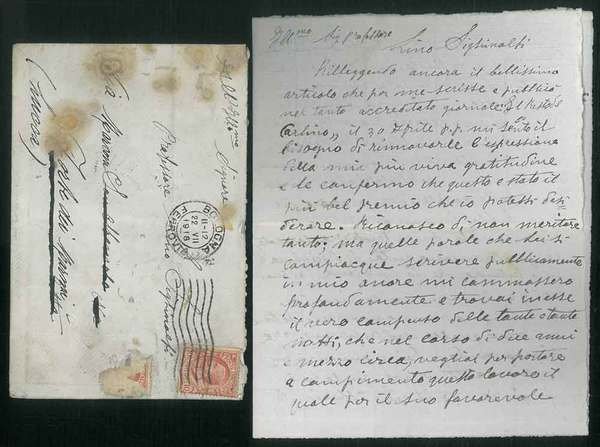 All'Ill.mo Signore
Professore Lino Sighinolfi
Via
(
BOLOGNA
FERROVIA
11-12
22 VII
1916
Ill.mo Sig. Professore
Lino Sighinolfi
Rilleggendo ancora il bellissimo
articolo che per me scrisse e pubblicò
nel tanto accreditato giornale "Il Resto del
Carlino", il 30 Aprile p.p. mi sento il
bisogno di rinnovarle l'espressione
della mia più viva gratitudine
e le confermo che questo è stato il
più bel premio che io potessi desi
derare. Riconosco di non meritare
tanto; ma quelle parole che Lei si
compiacque scrivere pubblicamente
in mio onore mi commossero
profondamente e trovai in esse
il vero compenso delle tante e tante
notti, che nel corso di due anni
e mezzo circa, vegliai per portare
a compimento questo lavoro il
quale per il suo favorevole